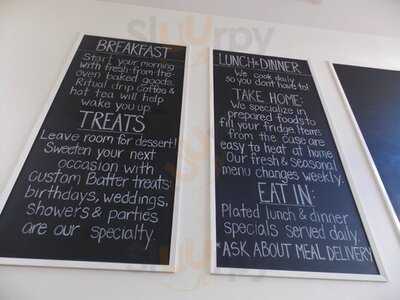 BREAKFAST
Start your morning
with fresh-from-the-
oven baked goods.
Ritual drip coffee &
hot tea will help
wake you up
TREATS
Leave room for dessert!
Sweeten your next
occasion with
custom Batter treats:
birthdays, weddings,
showers & parties
are our specialty.
LUNCH & DINNER
We cook daily
so you don't have to!
TAKE HOME:
We specialize in
prepared foods to
fill your fridge. Items
from the case are
easy to heat at home
Our fresh & seasonal
menu changes weekly.
EAT IN:
Plated lunch & dinner
specials served daily.
*ASK ABOUT MEAL DELIVERY
Sluurpy